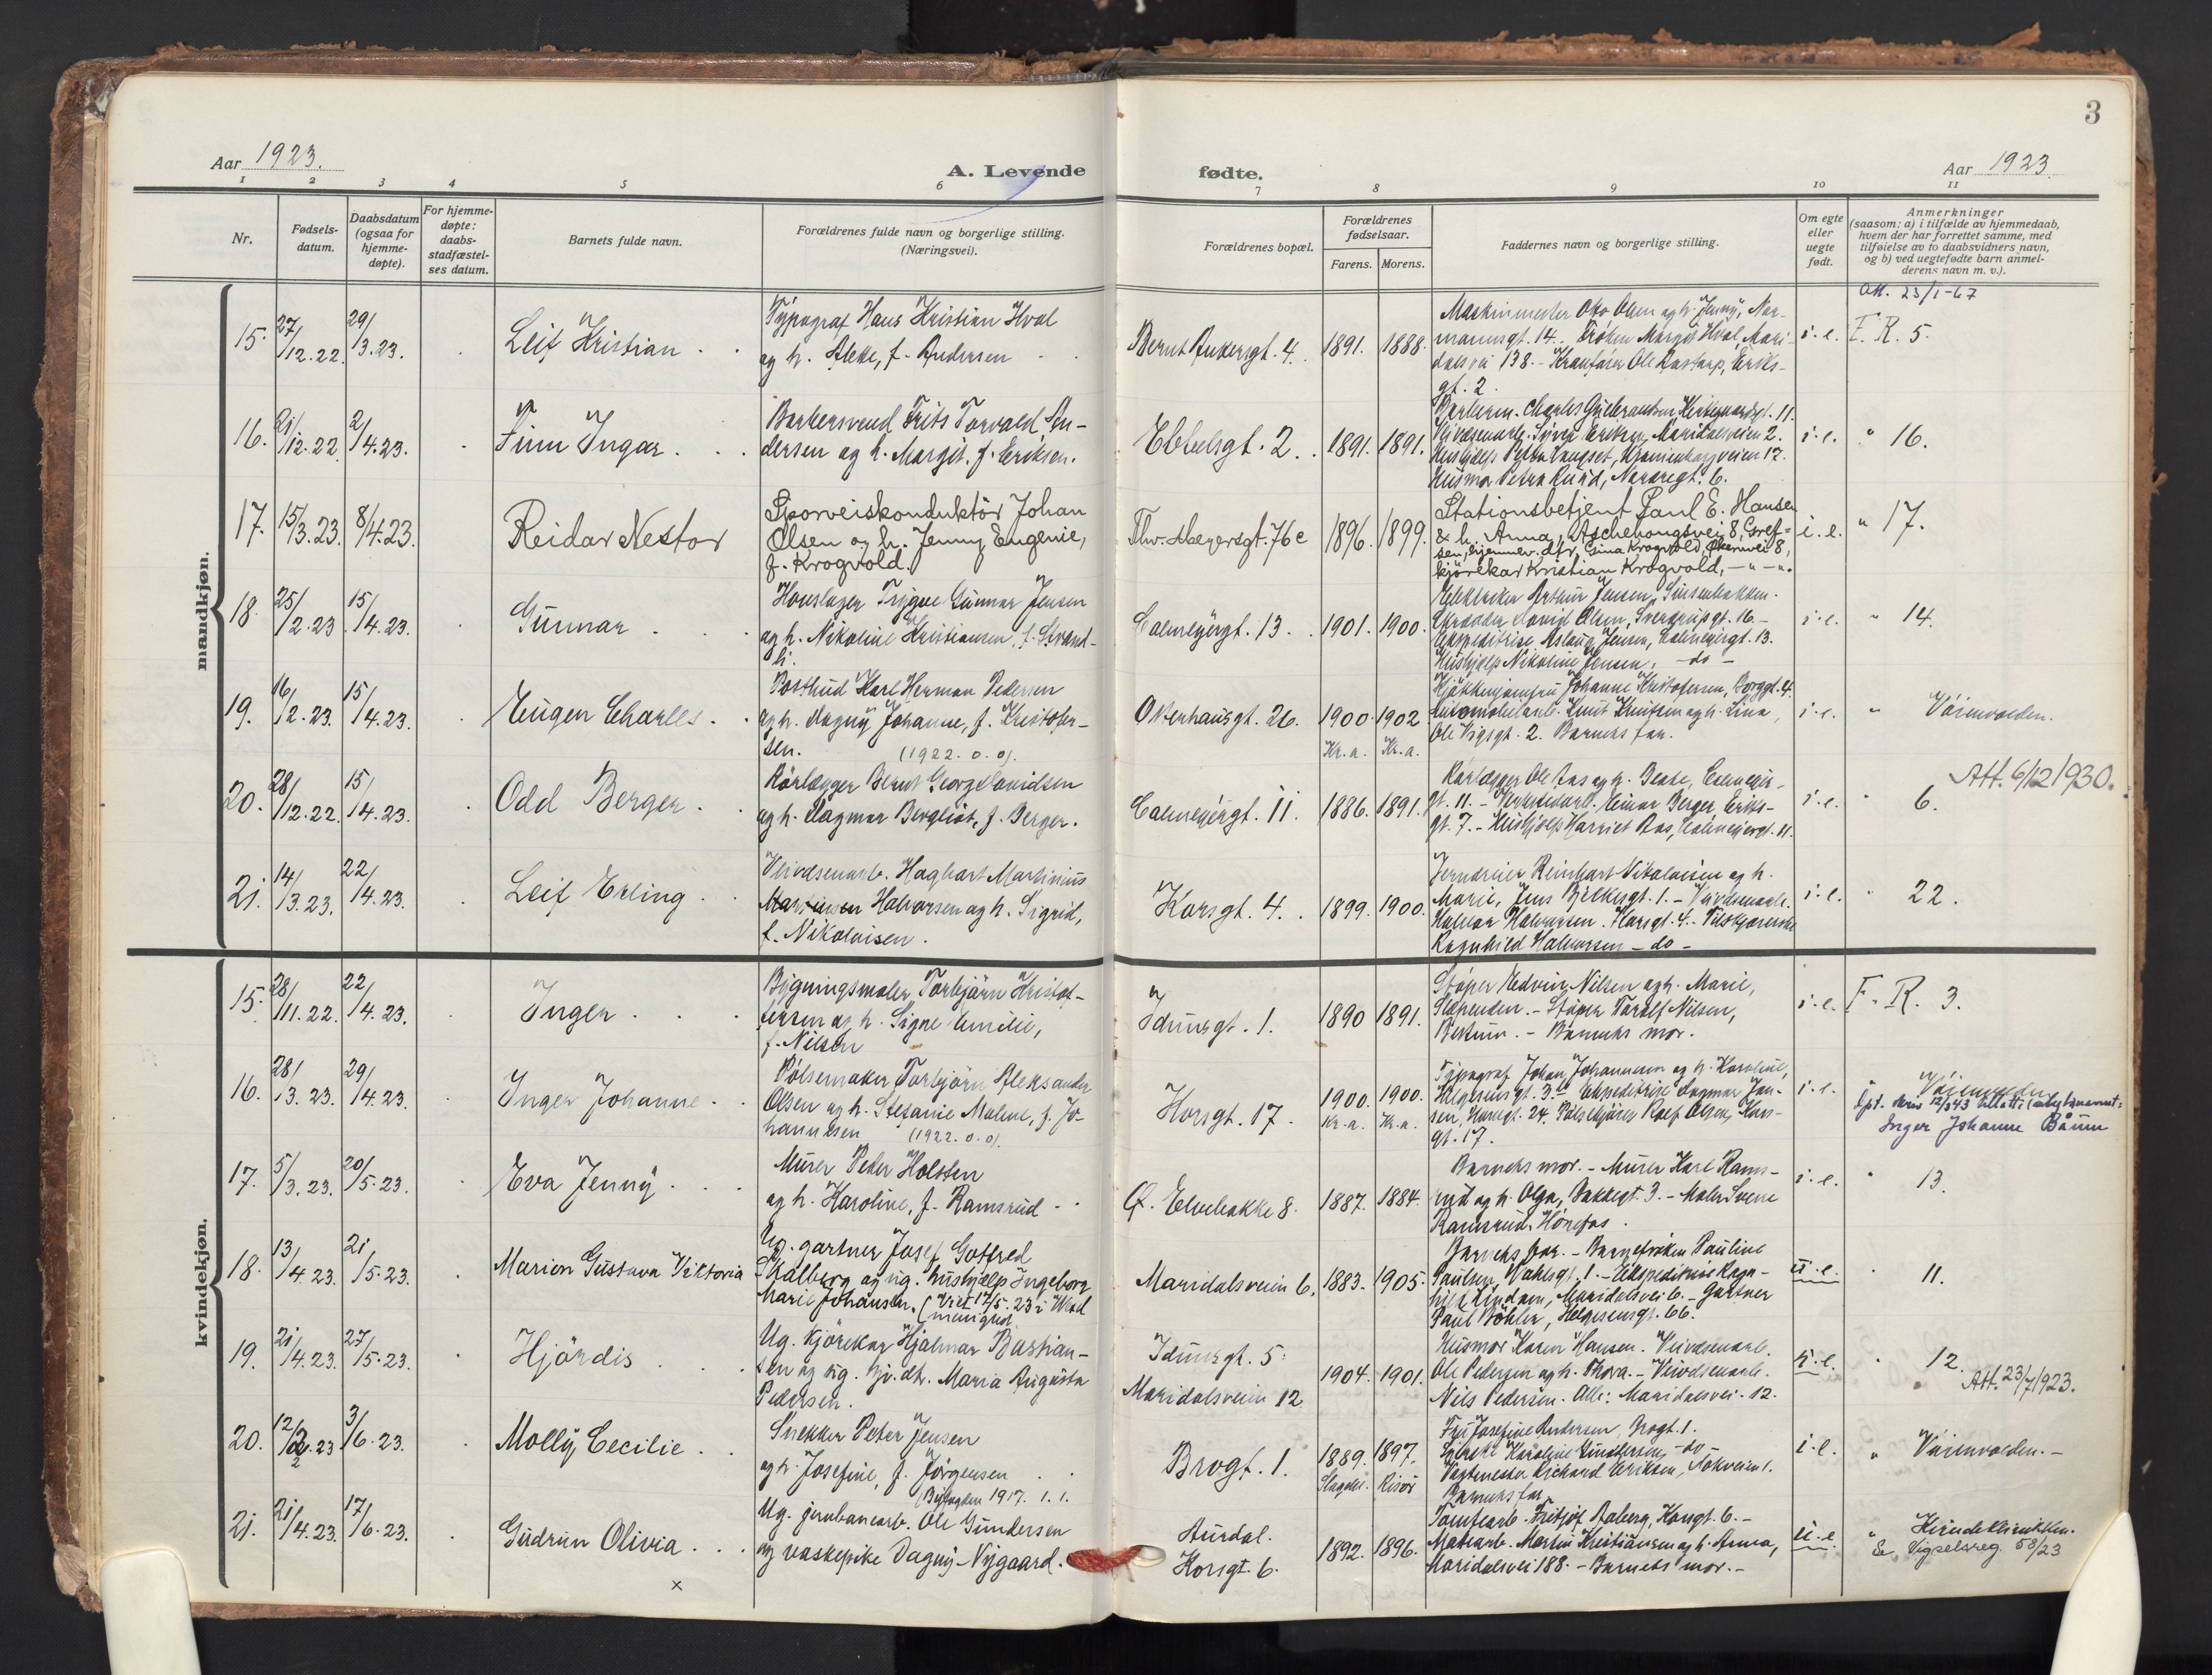 3
Aar 1923.
A. Levende
fødte.
Aar 1923.
1 2 3 4 5 6 7 8 9 10 11
Nr.
Fødsels-
datum.
Daabsdatum
(ogsaa for
hjemme-
døpte).
For hjemme-
døpte:
daabs-
stadfæstel-
ses datum.
Barnets fulde navn.
Forældrenes fulde navn og borgerlige stilling.
(Næringsvei).
Forældrenes bopæl.
Forældrenes
fødselsaar.
Farens. Morens.
Faddernes navn og borgerlige stilling.
Om egte
eller
uegte
født.
Anmerkninger
(saasom: a) i tilfælde av hjemmedaab,
hvem der har forrettet samme, med
tilføielse av to daabsvidners navn,
og b) ved uegtefødte barn anmel-
derens navn m. v.).
mandkjøn.
15. 27/12.22. 29/3.23. Leif Kristian
Typograf Hans Kristian Hval
og h. f. Andersen
Bernt Ankersgt. 4. 1891. 1888.
Maskinmester Otto Olsen og h. Jenny, Nor-
mannsgt. 14. Frøken Margit Hval, Mari-
dalsvei 138. - Ole Erik-
gt. 2.
i.e. F. R. 5.
Att. 23/1-67
16. 21/12.22. 2/4.23. Finn Ingar
Barbersvend Frits Torvald An-
dersen og h. Margit, f. Eriksen.
Ebbelsgt. 2. 1891. 1891.
Charles 11.
Eriksen, Maridalsveien 2.
17.
Husmor Petra 6.
i.e. " 16.
17. 15/3.23. 8/4.23. Reidar Nestor
Sporveiskonduktör Johan
Olsen og h. Jenny Eugenie,
f. Krogvold.
Thv. Meyersgt. 76c 1896. 1899.
Stationsbetjent Paul E. Hansen
& h. Anna, Aschehougsvei 8, Gref-
sen, hjemmev. dtr. Gina Krogvold, Økernvei 8,
kjörekar Kristian Krogvold, - " - ".
i.e. " 17.
18. 25/2.23. 15/4.23. Gunnar
Hovslager Trygve Gunnar Jensen
og h. Nikoline Kristiansen, f. Strand-
li.
Calmeyergt. 13. 1901. 1900.
Elektriker Arthur Jensen, Sinsenbakken.
Skrædder Olsen, Sverdrupsgt. 16. -
Ekspeditrise Aslaug Jensen, Calmeyergt. 13.
Hushjelp Nikoline Jensen, - do -
i.e. " 14.
19. 16/2.23. 15/4.23. Eugen Charles
Postbud Karl Herman Pedersen
og h. Dagny Johanne, f. Kristofer-
sen. (1922. 0. 0).
Osterhausgt. 26. 1900. 1902
Kr.a. Kr.a.
Johanne Kristofersen, Borggt. 4.
Automobilarb. Knut Knutsen og h. Lina,
Ole Vigsgt. 2. Barnets far.
i.e. " Vaienvolden.
20. 28/12.22. 15/4.23. Odd Berger
Rörlægger Bernt Georg Davidsen
og h. Dagmar Bergliot, f. Berger.
Calmeyergt. 11. 1886. 1891.
Rörlægger Ole Aas og h. Beate, Calmeyer-
gt. 11. - Einar Berger, Eriks-
gt. 7. - Hushjelp Harriet Aas, Calmeyergt. 11.
i.e. " 6.
Att. 6/12 1930.
21. 14/3.23. 22/4.23. Leif Erling
Veivæsenarb. Hagbart Martinius
Halvorsen og h. Sigrid,
f. Nikolaisen.
Korsgt. 4. 1899. 1900.
Jerndreier Reinhart Nikolaisen og h.
Marie, Jens Bjelkesgt. 1. - Veivæsenarb.
Halvor Halvorsen, Korsgt. 4. -
Ragnhild Halvorsen - do -
i.e. " 22.
kvindekjøn.
15. 28/11.22. 22/4.23. Inger
Bygningsmaler Torbjörn Kristof-
fersen og h. Signe Emilie,
f. Nilsen
Idunsgt. 1. 1890 1891.
Støper Edvin Nilsen og h. Marie,
Slependen. - Støper Toralf Nilsen,
Bestum. - Barnets mor.
i.e. F. R. 3.
16. 28/3.23. 29/4.23. Inger Johanne
Pölsemaker Torbjörn Aleksander
Olsen og h. Stefanie Malene, f. Jo-
hannesen (1922. 0. 0).
Korsgt. 17. 1900. 1900.
Kr.a. Kr.a.
Typograf Johan Johannesen og h. Karoline,
Helgesensgt. 3. Ekspeditrise Dagmar Jan-
sen, Korsgt. 24. Rolf Olsen, Kors-
gt. 17.
i.e. Vaienvolden
Inger Johanne Baunn
17. 5/3.23. 20/5.23. Eva Jenny
Murer Peder Holsten
og h. Karoline, f. Ramsrud
Ø. Elvebakke 8. 1887. 1884.
Barnets mor. - Murer Karl Rams-
rud og h. Olga, Bakkegt. 3. - Maler Sverre
Ramsrud, Hönefos.
i.e. " 13.
18. 13/4.23. 21/5.23. Marion Gustava Viktoria
Ug. gartner Josef Gotfred
Stalberg og ug. hushjelp Ingeborg
Marie Johansen. (Viet 17/5.23 i Wood
menigh.)
Maridalsveien 6. 1883. 1905.
Barnets far. - Barnefröken Pauline
Paulsen, Wahlsgt. 1. - Ekspeditrise Ragn-
hild Lindsen, Maridalsvei 6. - Gartner
Paul Böhler, Helgesensgt. 66.
u.e. " 11.
19. 21/4.23. 27/5.23. Hjördis
Ug. kjörekar Hjalmar Bastian-
sen og ug. hjv. dtr. Maria Augusta
Pedersen.
Idunsgt. 5.
Maridalsveien 12
1904. 1901.
Husmor Karen Hansen. Veivæsenarb.
Ole Pedersen og h. Thora. - Veivæsenarb.
Nils Pedersen. Alle: Maridalsvei. 12.
u.e. " 12.
Att. 23/7 1923.
20. 12/2.23 3/6.23. Molly Cecilie
Snekker Peter Jensen
og h. Josefine, f. Jörgensen
(Byfogden 1917. 1. 1.
Brogt. 1. 1889. 1897.
Slagelse. Risør
Fru Josefine Andersen, Brogt. 1.
Karoline - do -
Vagtmester Richard Eriksen,
Barnets far.
i.e. " Vaienvolden. -
21. 21/4.23. 17/6.23. Gudrun Olivia
Ug. jernbanearb. Ole Gundersen
og vaskepike Dagny Nygaard.
Aurdal.
Korsgt. 6.
1892. 1896.
Tomtearb. Fritjof Aaberg, Korsgt. 6. -
Martin Kristiansen og h. Anna,
Maridalsvei 188. - Barnets mor. -
u.e. " Kvindeklinikken.
Se Vigselsreg. 58/23
x